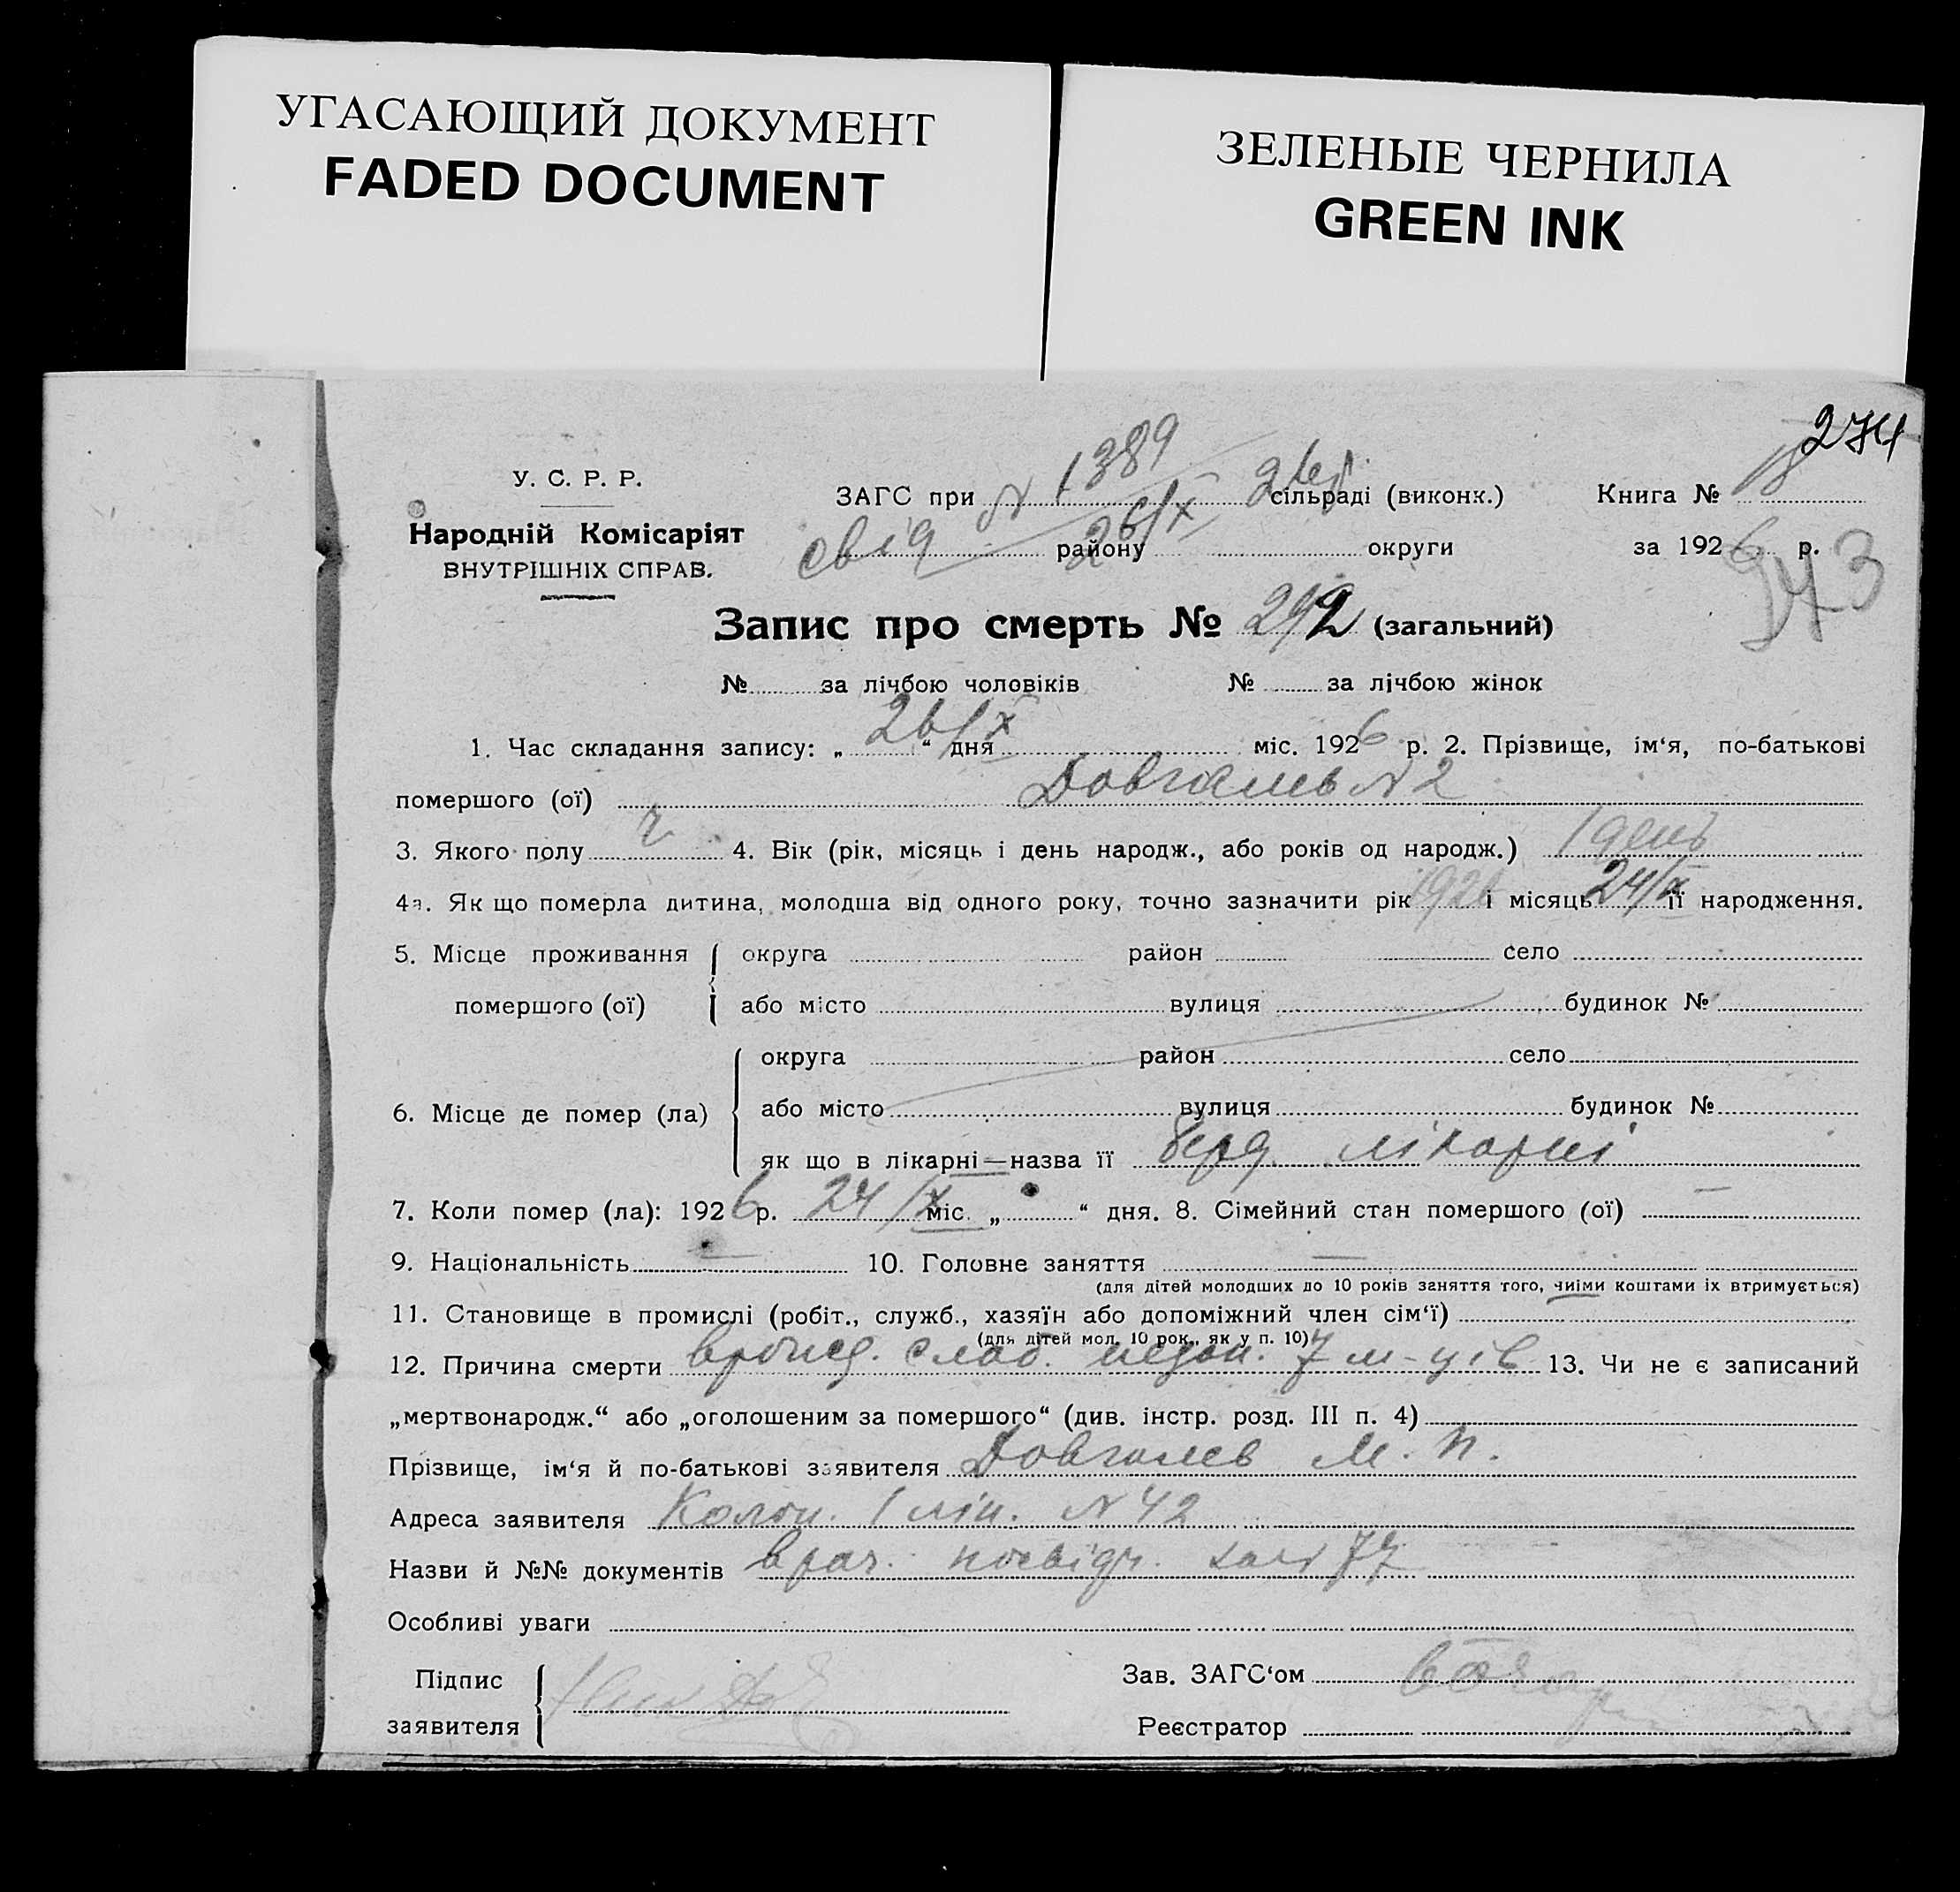 УГАСАЮЩИЙ ДОКУМЕНТ
FADED DOCUMENT
ЗЕЛЕНЫЕ ЧЕРНИЛА
GREEN INK
274
У. С. Р. Р.
Народній Комісаріят
ВНУТРІШНІХ СПРАВ.
ЗАГС при N 1389 сільраді (виконк.) Книга № 18
свід району 26/X округи за 1926 р.
273
Запис про смерть № 292 (загальний)
№ за лічбою чоловіків № за лічбою жінок
1. Час складання запису: „26/X“ дня міс. 1926 р. 2. Прізвище, ім‘я, по-батькові
помершого (ої) Довгалев N 2
3. Якого полу ч 4. Вік (рік, місяць і день народж., або років од народж.) 1 день
4а. Як що померла дитина, молодша від одного року, точно зазначити рік 1926 і місяць 24/X її народження.
5. Місце проживання округа район село
помершого (ої) або місто вулиця будинок №
округа район село
6. Місце де помер (ла) або місто вулиця будинок №
як що в лікарні—назва її лікарні
7. Коли помер (ла): 1926 р. 24/X міс. „ “ дня. 8. Сімейний стан помершого (ої) —
9. Національність — 10. Головне заняття —
(для дітей молодших до 10 років заняття того, чиїми коштами їх втримується)
11. Становище в промислі (робіт., служб., хазяїн або допоміжний член сім‘ї)
(для дітей мол. 10 рок., як у п. 10)
12. Причина смерти слаб. 7 м-ців 13. Чи не є записаний
„мертвонародж.“ або „оголошеним за помершого“ (див. інстр. розд. III п. 4)
Прізвище, ім‘я й по-батькові заявителя Довгалев М. П.
Адреса заявителя Колон. 1 лін. N 42
Назви й №№ документів врач. посвідч. 77
Особливі уваги
Підпис
заявителя
Зав. ЗАГС‘ом
Реєстратор